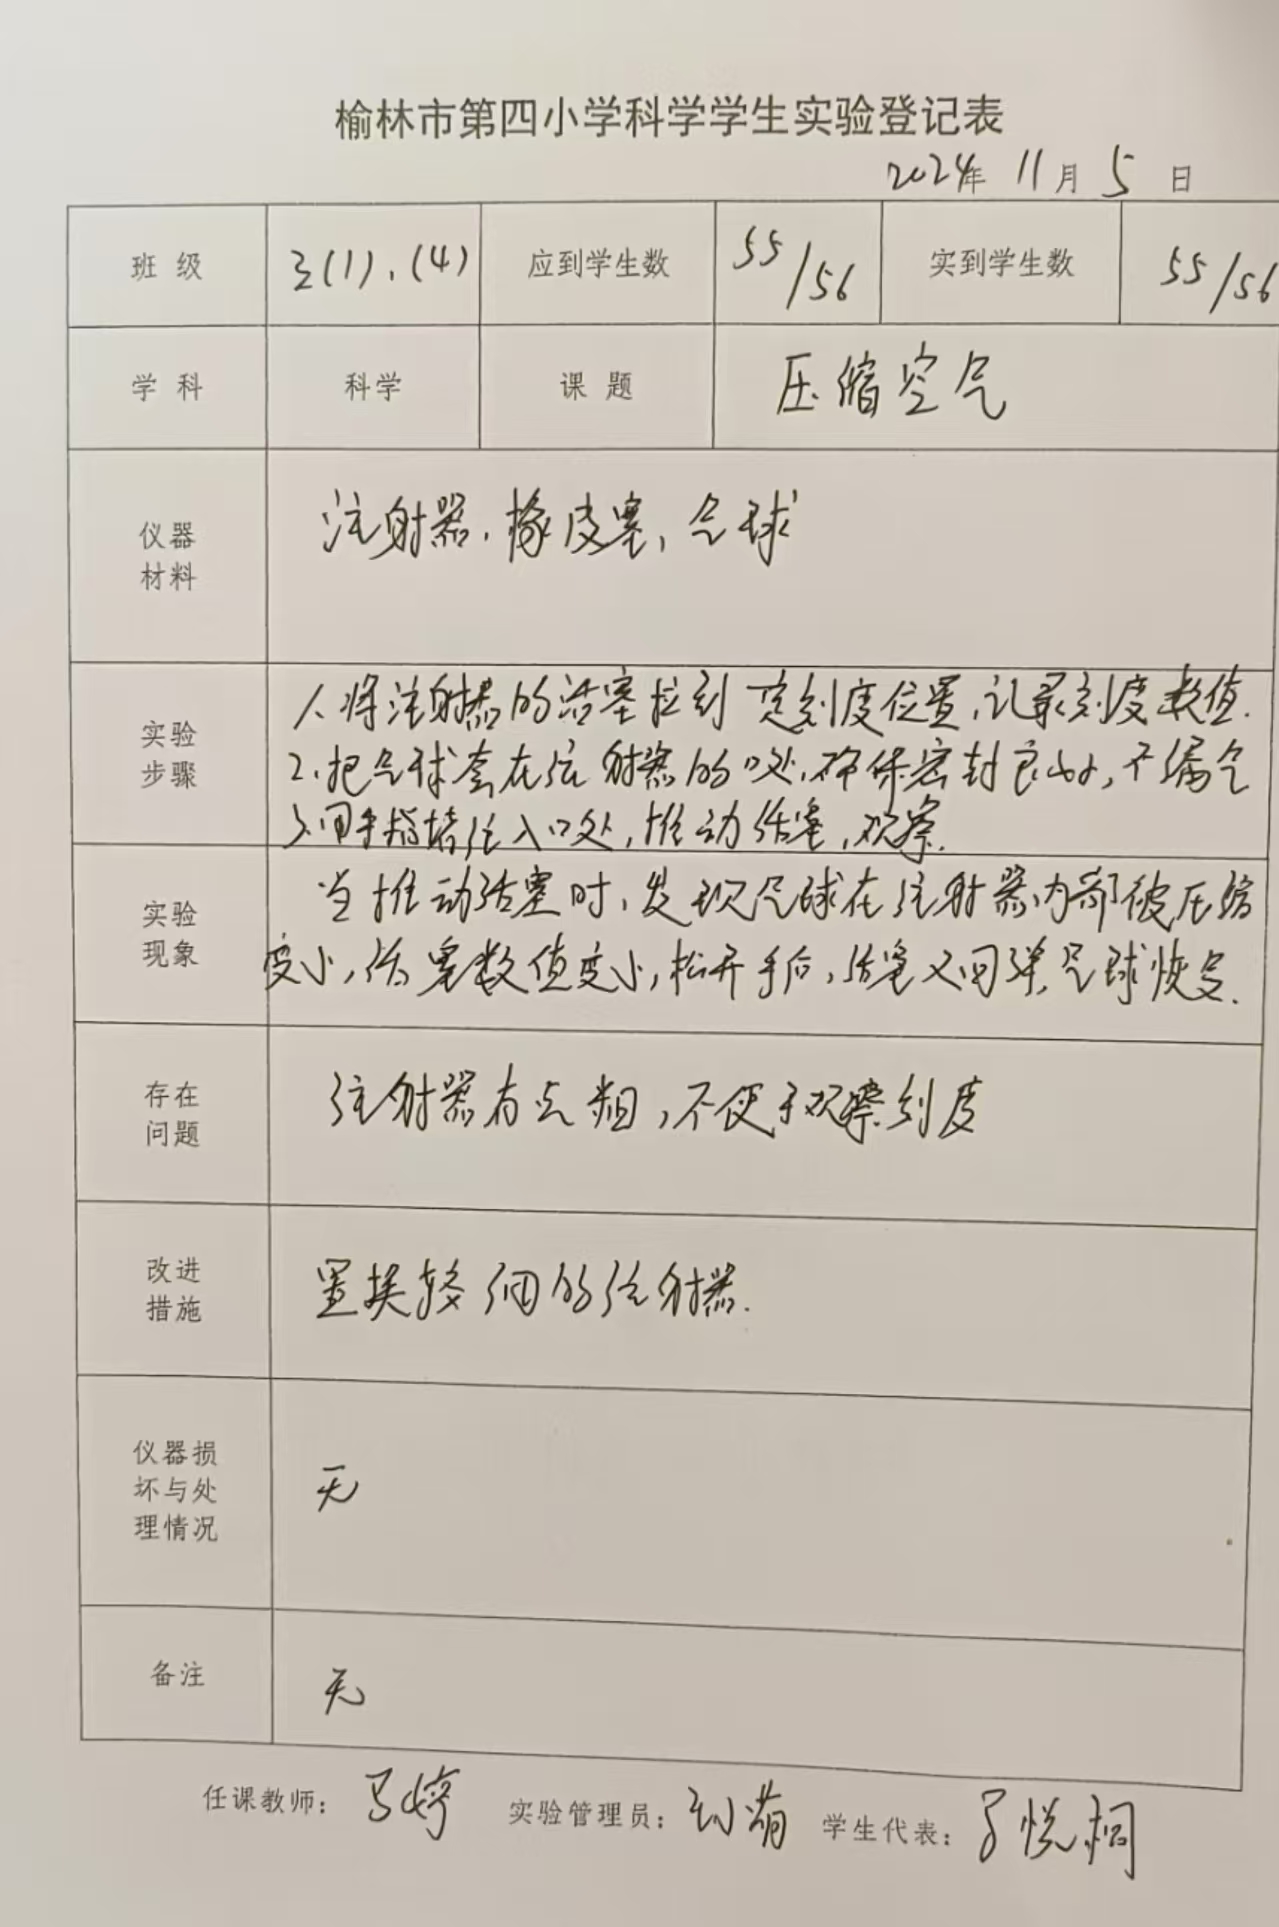 榆林市第四小学科学学生实验登记表
2024年 11月 5日
班级 三(1)、(4) 应到学生数 55/56 实到学生数 55/56
学科 科学 课题 压缩空气
仪器
材料
注射器、橡皮塞、气球
实验
步骤
1.将注射器的活塞拉到一定刻度位置,记录刻度数值.
2.把气球套在注射器的口处,确保密封良好,不漏气
3.用手指堵住入口处,推动活塞,观察.
实验
现象
当推动活塞时,发现气球在注射器内部被压缩
变小,活塞数值变小,松开手后,活塞又回弹,气球恢复.
存在
问题
注射器有点粗,不便于观察刻度
改进
措施
置换较细的注射器.
仪器损
坏与处
理情况
无
备注
无
任课教师: 马婷 实验管理员: 刘 学生代表: 悦桐